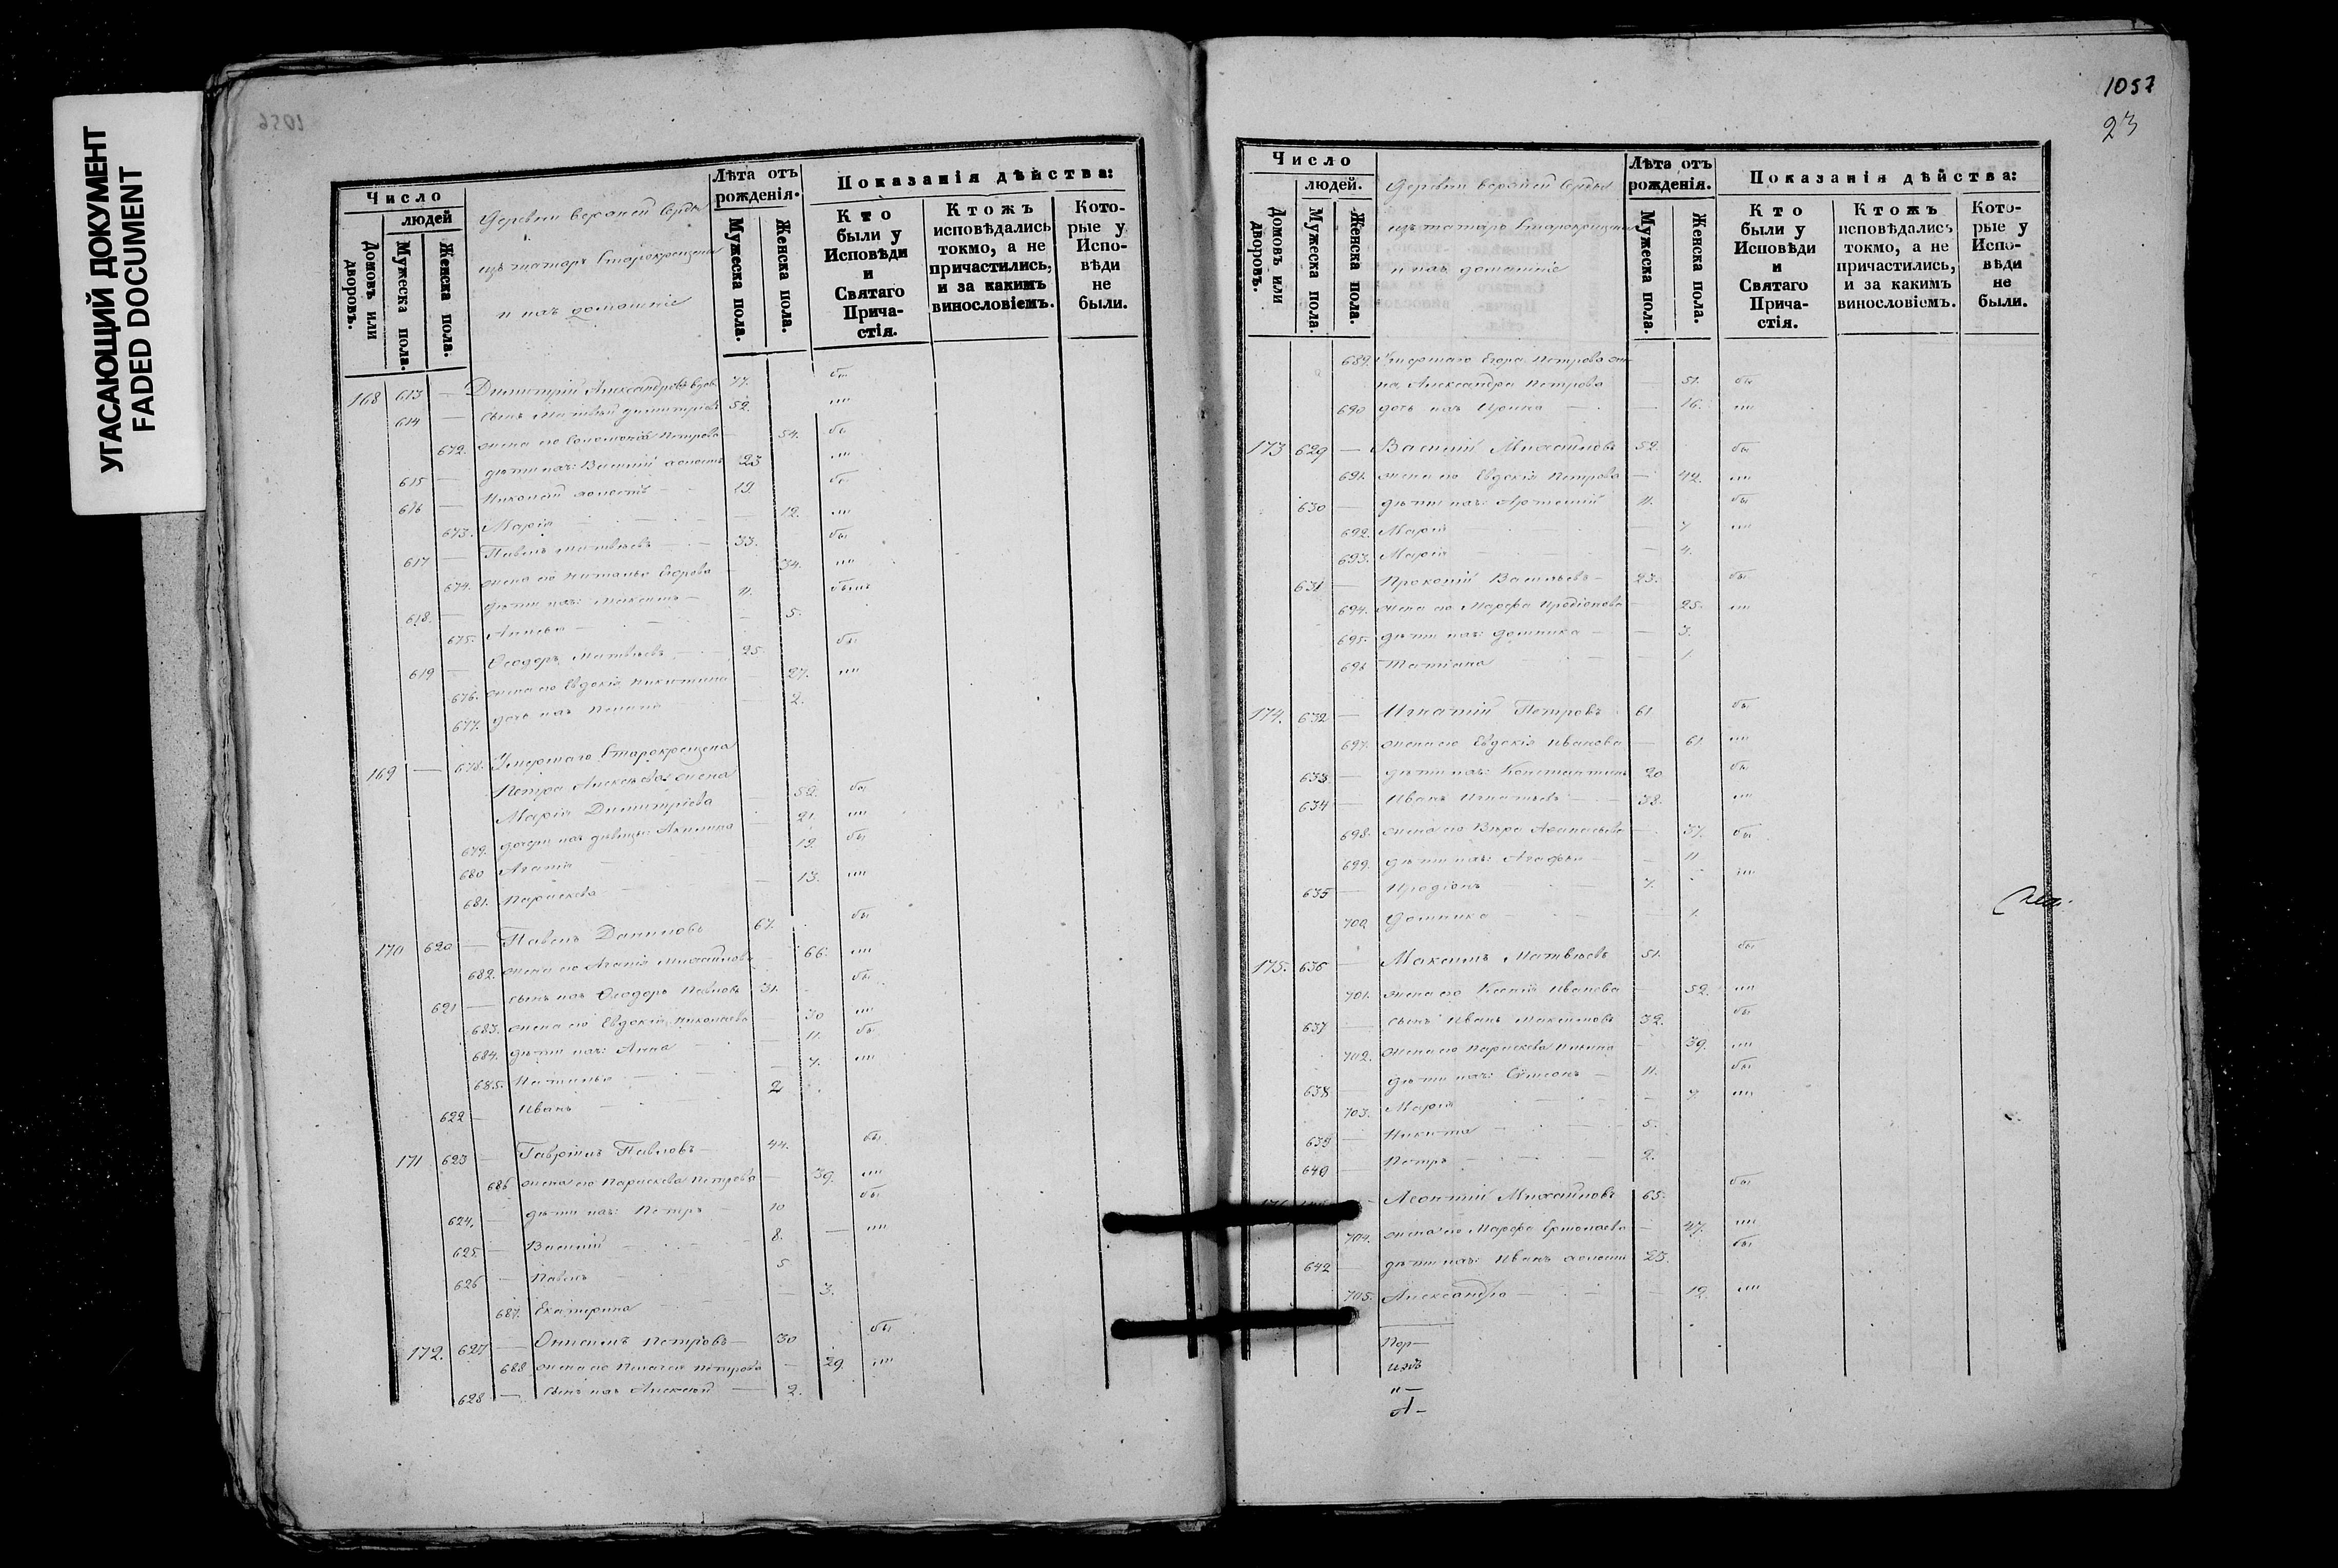 УГАСАЮЩИЙ ДОКУМЕНТ
FADED DOCUMENT
Число
людей
Домовъ или дворовъ.
Мужеска пола.
Женска пола.
Деревни верхней Серды
изъ татаръ Старокрещены
и ихъ домашніе
Лѣта отъ рожденія.
Мужеска пола.
Женска пола.
Показанія дѣйства:
Кто были у Исповѣди и Святаго Прича-стія.
Ктожъ исповѣдались токмо, а не причастились, и за какимъ винословіемъ.
Кото-рые у Испо-вѣди не были.
168 613 — Димитрій Александровъ вдов 77. бы
614 — сынъ Матвѣй Димитріевъ 52. ли
672. жена его Соломонія Петрова 54. бы
615 — дѣти ихъ: Василій холостъ 23 ли
616 — Николай холостъ 19. бы
673. Марія — 12. ли
617 — Павелъ Матвѣевъ — 33. бы
674. жена его Наталья Егорова 34. ли
618. — дѣти ихъ: Максимъ — 11. были
675. Анисья — 5.
619 — Ѳеодоръ Матвѣевъ — 25 бы
676. жена его Евдокія Никитина 27. ли
677. дочь ихъ 2.
169 — 678. Умершаго Старокрещена
Петра Алексѣева жена
Марія Димитріева 52. бы
679. дочери ихъ дѣвицы: Акилина 21. ли
680 Агапія — 19. бы
681. Параскева — 13. ли
170 620 — Павелъ Даниловъ 67. бы
682. жена его Агапія Михайлова 66. ли
621 — сынъ ихъ Ѳеодоръ Павловъ 31. бы
683. жена его Евдокія Николаева 30 ли
684. дѣти ихъ: Анна — 11. бы
685. Наталья — 7. ли
622 — Иванъ — 2
171 623 — Гавріилъ Павловъ — 44. бы
686 жена его Параскева Петрова — 39. ли
624. — дѣти ихъ: Петръ — 10 бы
625. — Василій — 8. ли
626 — Павелъ 5
687. Екатерина — 3.
172. 627 — Онисимъ Петровъ — 30 бы
688 жена его Пелагея Петрова — 29. ли
628 — сынъ ихъ Алексѣй — 2.
1057
23
Число
людей.
Домовъ или дворовъ.
Мужеска пола.
Женска пола.
Деревни верхней Серды
изъ татаръ Старокрещены
и ихъ домашніе
Лѣта отъ рожденія.
Мужеска пола.
Женска пола.
Показанія дѣйства:
Кто были у Исповѣди и Святаго Прича-стія.
Ктожъ исповѣдались токмо, а не причастились, и за какимъ винословіемъ.
Кото-рые у Испо-вѣди не были.
689. Умершаго Егора Петрова же-
на Александра Петрова — 51. бы
690 дочь ихъ Ирина — 16. ли
173 629 — Василій Михайловъ 52. бы
691. жена его Евдокія Петрова — 42. ли
630 — дѣти ихъ: Артемій 11. бы
692. Марія — 7 ли
693. Марія — 4.
631 — Прокопій Васильевъ — 23. бы
694. жена его Марфа Иродіонова 25. ли
695. дѣти ихъ: Домника — 3.
696 Татіана — 1.
174. 632 — Игнатій Петровъ 61. бы
697. жена его Евдокія Иванова — 61. ли
633 — дѣти ихъ: Константинъ 20 бы
634 — Иванъ Игнатьевъ — 38. ли
698. жена его Вѣра Аѳанасьева 37. бы
699. дѣти ихъ: Агафья — 11. ли
635 — Иродіонъ — 7.
700. Домника — 1.
175. 636 — Максимъ Матвѣевъ 51. бы
701. жена его Ксенія Иванова 52. ли
637 — сынъ Иванъ Максимовъ 32. бы
702. жена его Параскева Ильина 39. ли
638 дѣти ихъ: Симеонъ — 11. бы
703. Марія — 7 ли
639 — Никита — 5.
640 — Петръ — 2.
— Леонтій Михайловъ 65. бы
704. жена его Марфа Ермолаева — 47. ли
642 — дѣти ихъ: Иванъ холостъ 23. бы
705. Александра — 12. ли